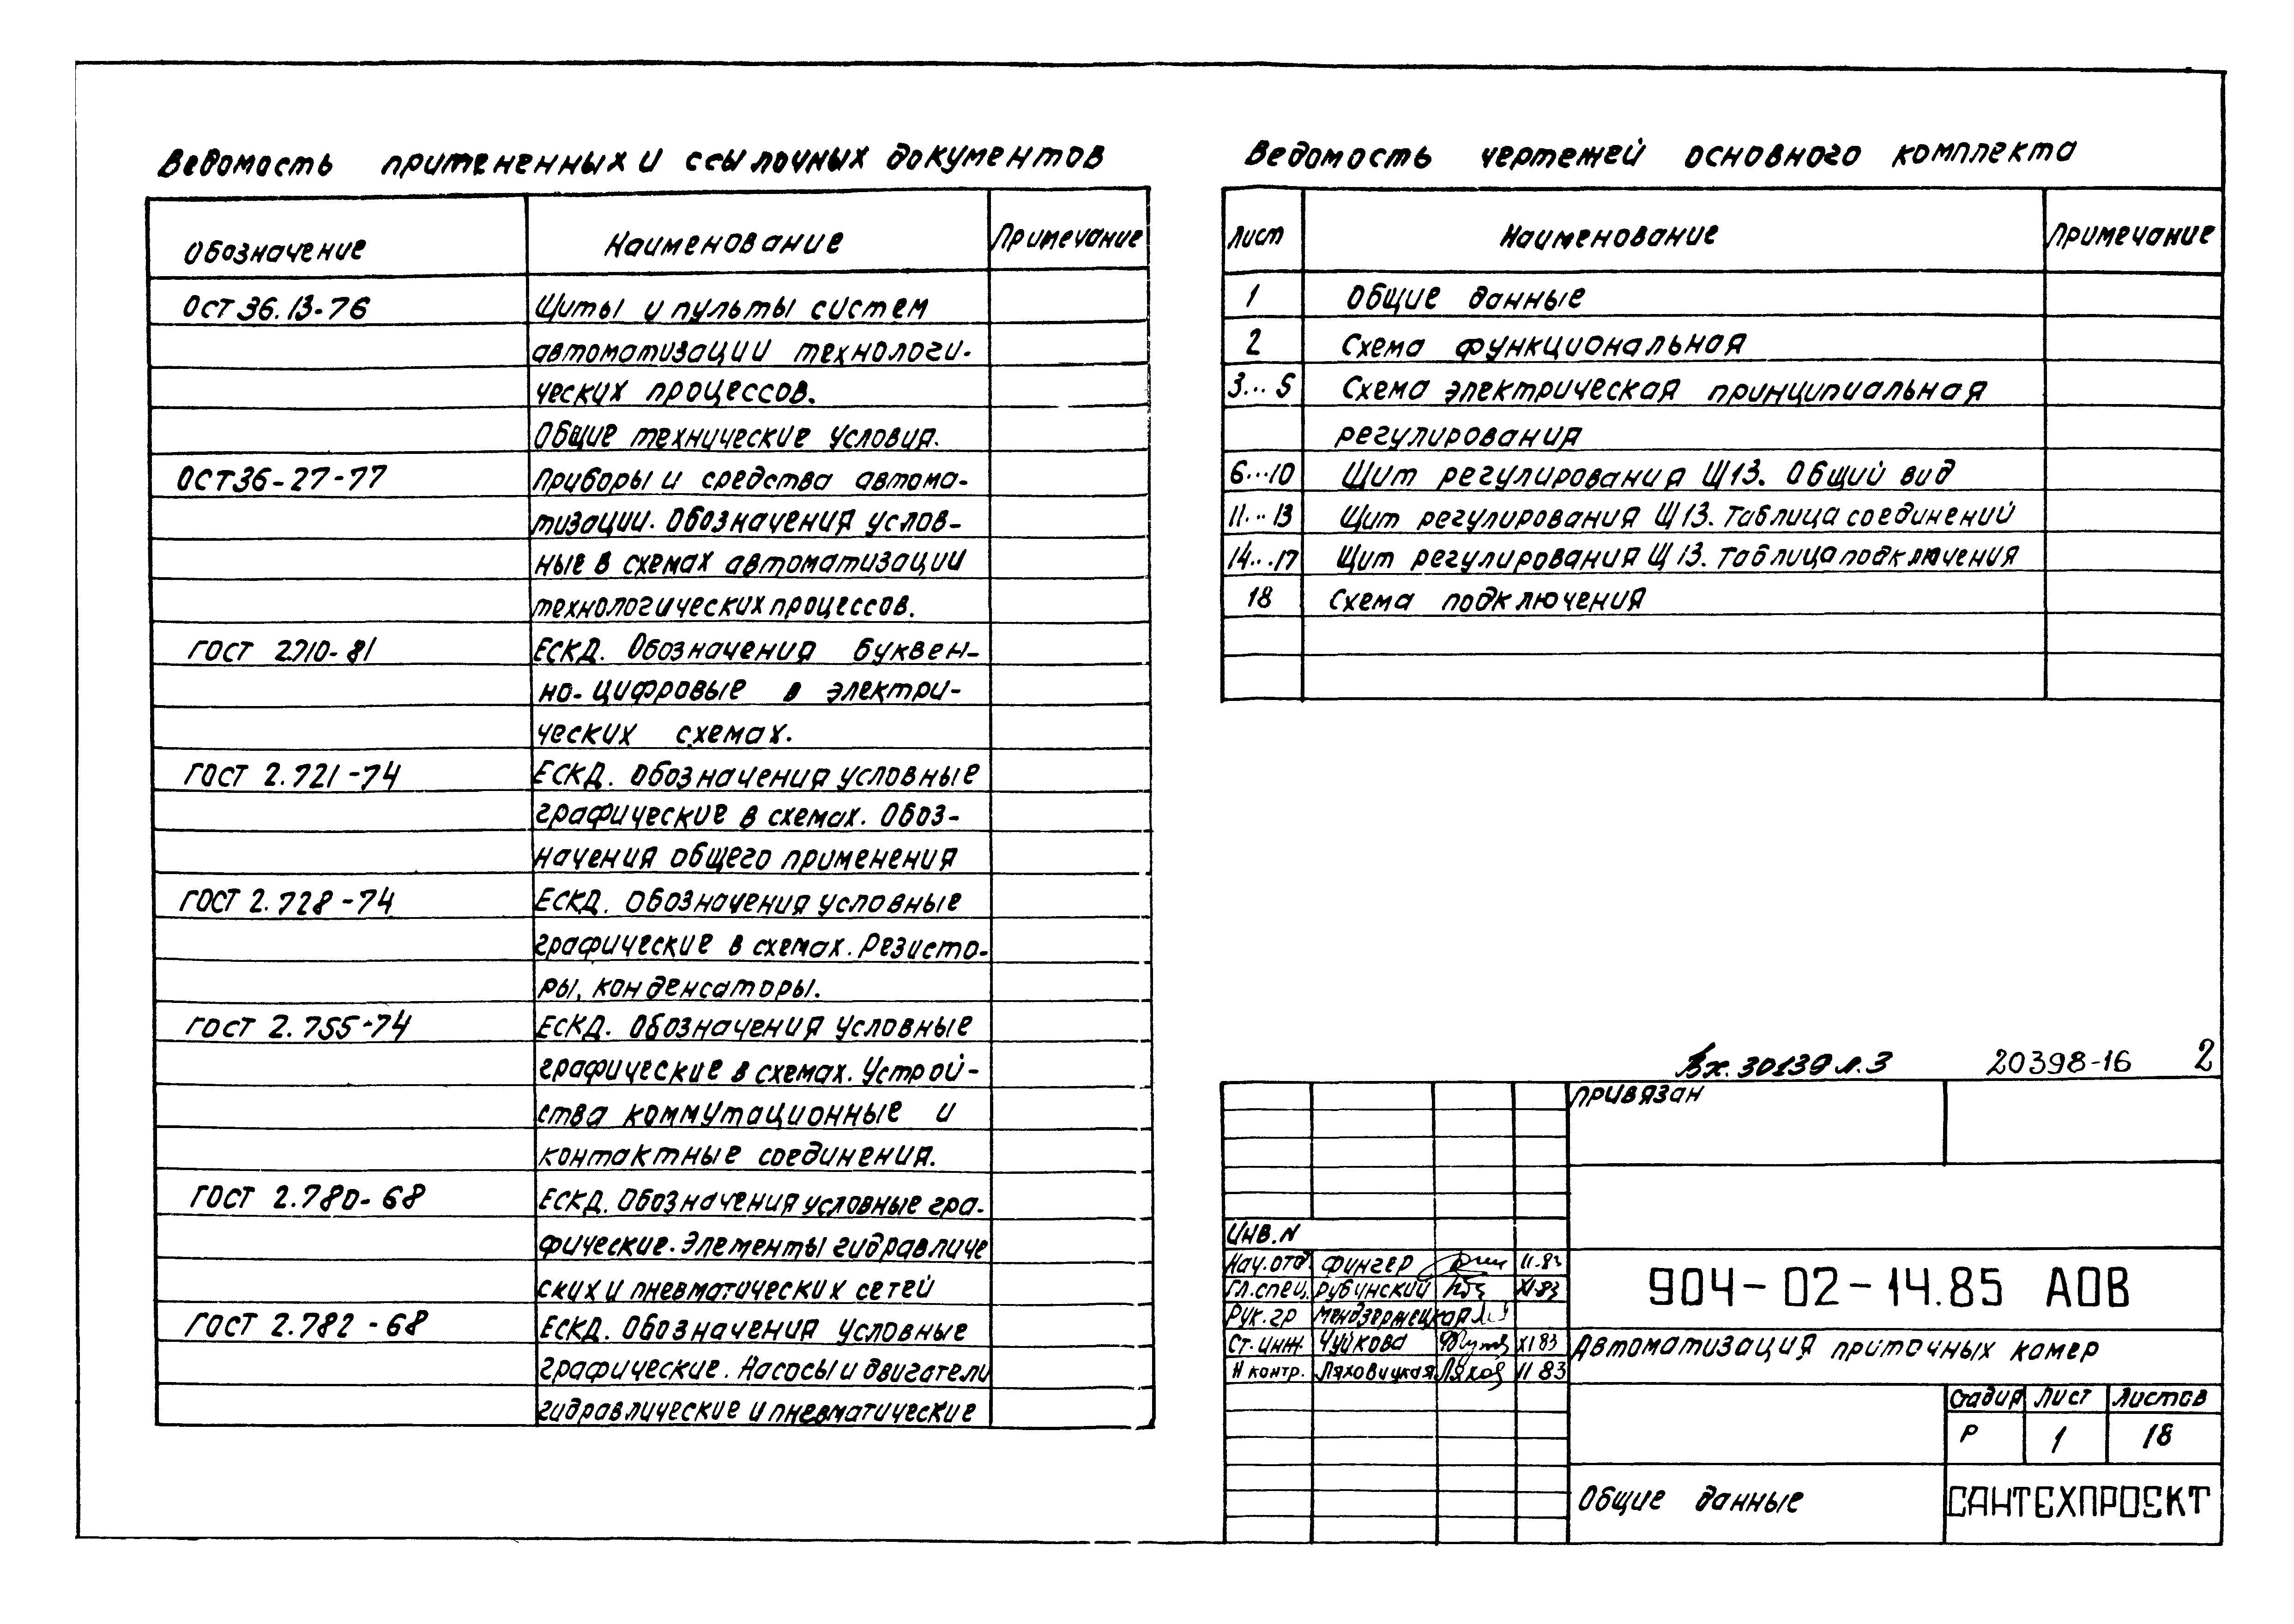 Ведомость примененных и ссылочных документов
Обозначение Наименование Примечание
ОСТ 36.13-76 Щиты и пульты систем
автоматизации технологи-
ческих процессов.
Общие технические условия.
ОСТ36-27-77 Приборы и средства автома-
тизации. Обозначения услов-
ные в схемах автоматизации
технологических процессов.
ГОСТ 2.710-81 ЕСКД. Обозначения буквен-
но-цифровые в электри-
ческих схемах.
ГОСТ 2.721-74 ЕСКД. Обозначения условные
графические в схемах. Обоз-
начения общего применения
ГОСТ 2.728-74 ЕСКД. Обозначения условные
графические в схемах. Резисто-
ры, конденсаторы.
ГОСТ 2.755-74 ЕСКД. Обозначения условные
графические в схемах. Устрой-
ства коммутационные и
контактные соединения.
ГОСТ 2.780-68 ЕСКД. Обозначения условные гра-
фические. Элементы гидравличе
ских и пневматических сетей
ГОСТ 2.782-68 ЕСКД. Обозначения условные
графические. Насосы и двигатели
гидравлические и пневматические
Ведомость чертежей основного комплекта
Лист Наименование Примечание
1 Общие данные
2 Схема функциональная
3...5 Схема электрическая принципиальная
регулирования
6...10 Щит регулирования Щ13. Общий вид
11...13 Щит регулирования Щ13. Таблица соединений
14...17 Щит регулирования Щ13. Таблица подключения
18 Схема подключения
Вх. 30139 л.3 20398-16 2
Привязан
Инв.N
Нач.отд Фингер 11.83
Гл.спец. Рубинский XI.83
Рук.гр Мендзержецкая
Ст.инж. Чуйкова XI 83
Н контр. Ляховицкая 11 83
904-02-14.85 АОВ
Автоматизация приточных камер
Стадия Лист Листов
Р 1 18
Общие данные
САНТЕХПРОЕКТ